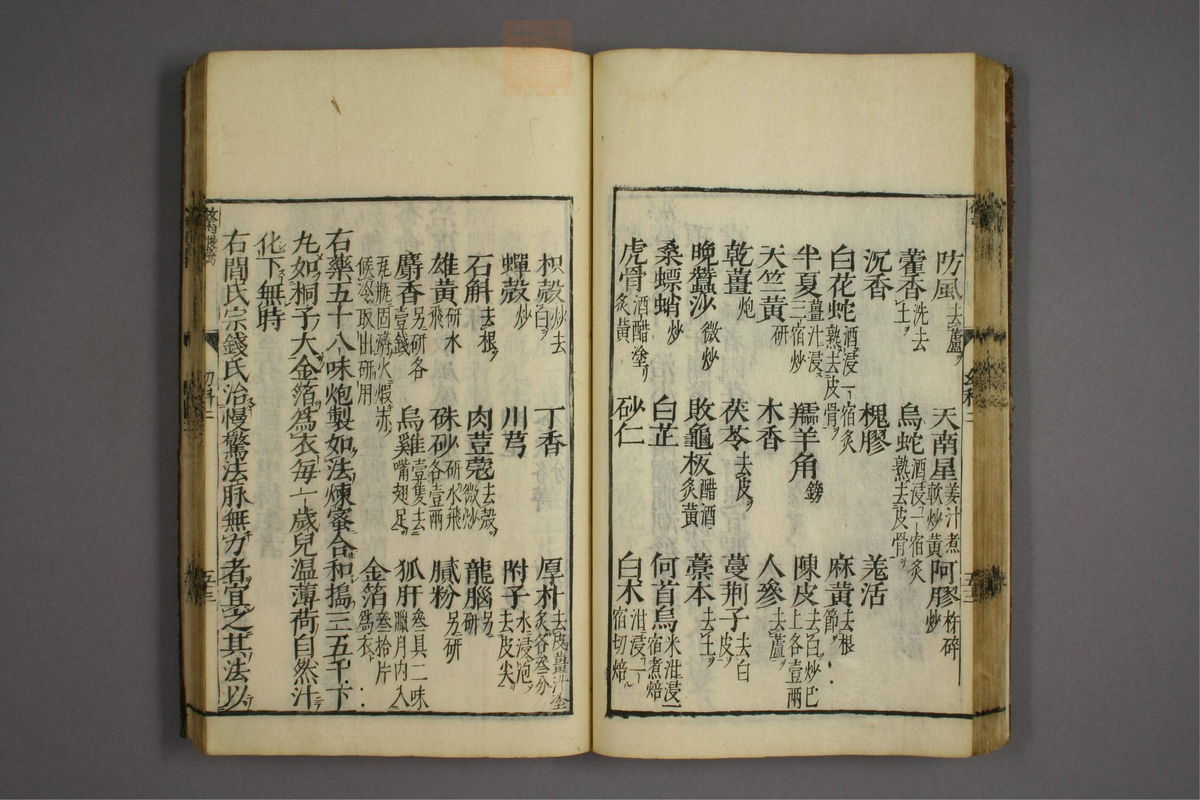 防風去蘆 天南星姜汁煮軟炒黃 阿膠杵碎炒
藿香洗去土 烏蛇酒浸一宿炙熟去皮骨
沉香 槐膠 羗活
白花蛇酒浸一宿炙熟去皮骨 麻黃去根節
半夏薑汁浸三宿炒 羚羊角鎊 陳皮去白炒巳上各壹兩
天竺黃研 木香 人參去蘆
乾薑炮 茯苓去皮 蔓荆子去白皮
晚蠶沙微炒 敗龜板醋酒炙黃 藁本去土
桑螵蛸炒 白芷 何首烏米泔浸一宿煮焙
虎骨酒醋塗炙黃 砂仁 白术泔浸一宿切焙
枳殼炒去白 丁香 厚朴去皮薑汁塗炙各叁分
蟬殼炒 川芎 附子水浸泡去皮尖
石斛去根 肉荳蔻去殼微炒 龍腦另研
雄黃研水飛 硃砂研水飛各壹兩 膩粉另研
麝香另研各壹錢 烏雞壹隻去嘴翅足 狐肝叁具二味臘月內入
瓦瓶固濟火煆赤候冷取出研用 金箔叁拾片爲衣
右藥五十八味炮製如法煉蜜合和搗三五千下
丸如桐子大金箔爲衣每一歲兒温薄荷自然汁
化下無時
右閻氏宗錢氏治慢驚法脉無力者宜之其法以